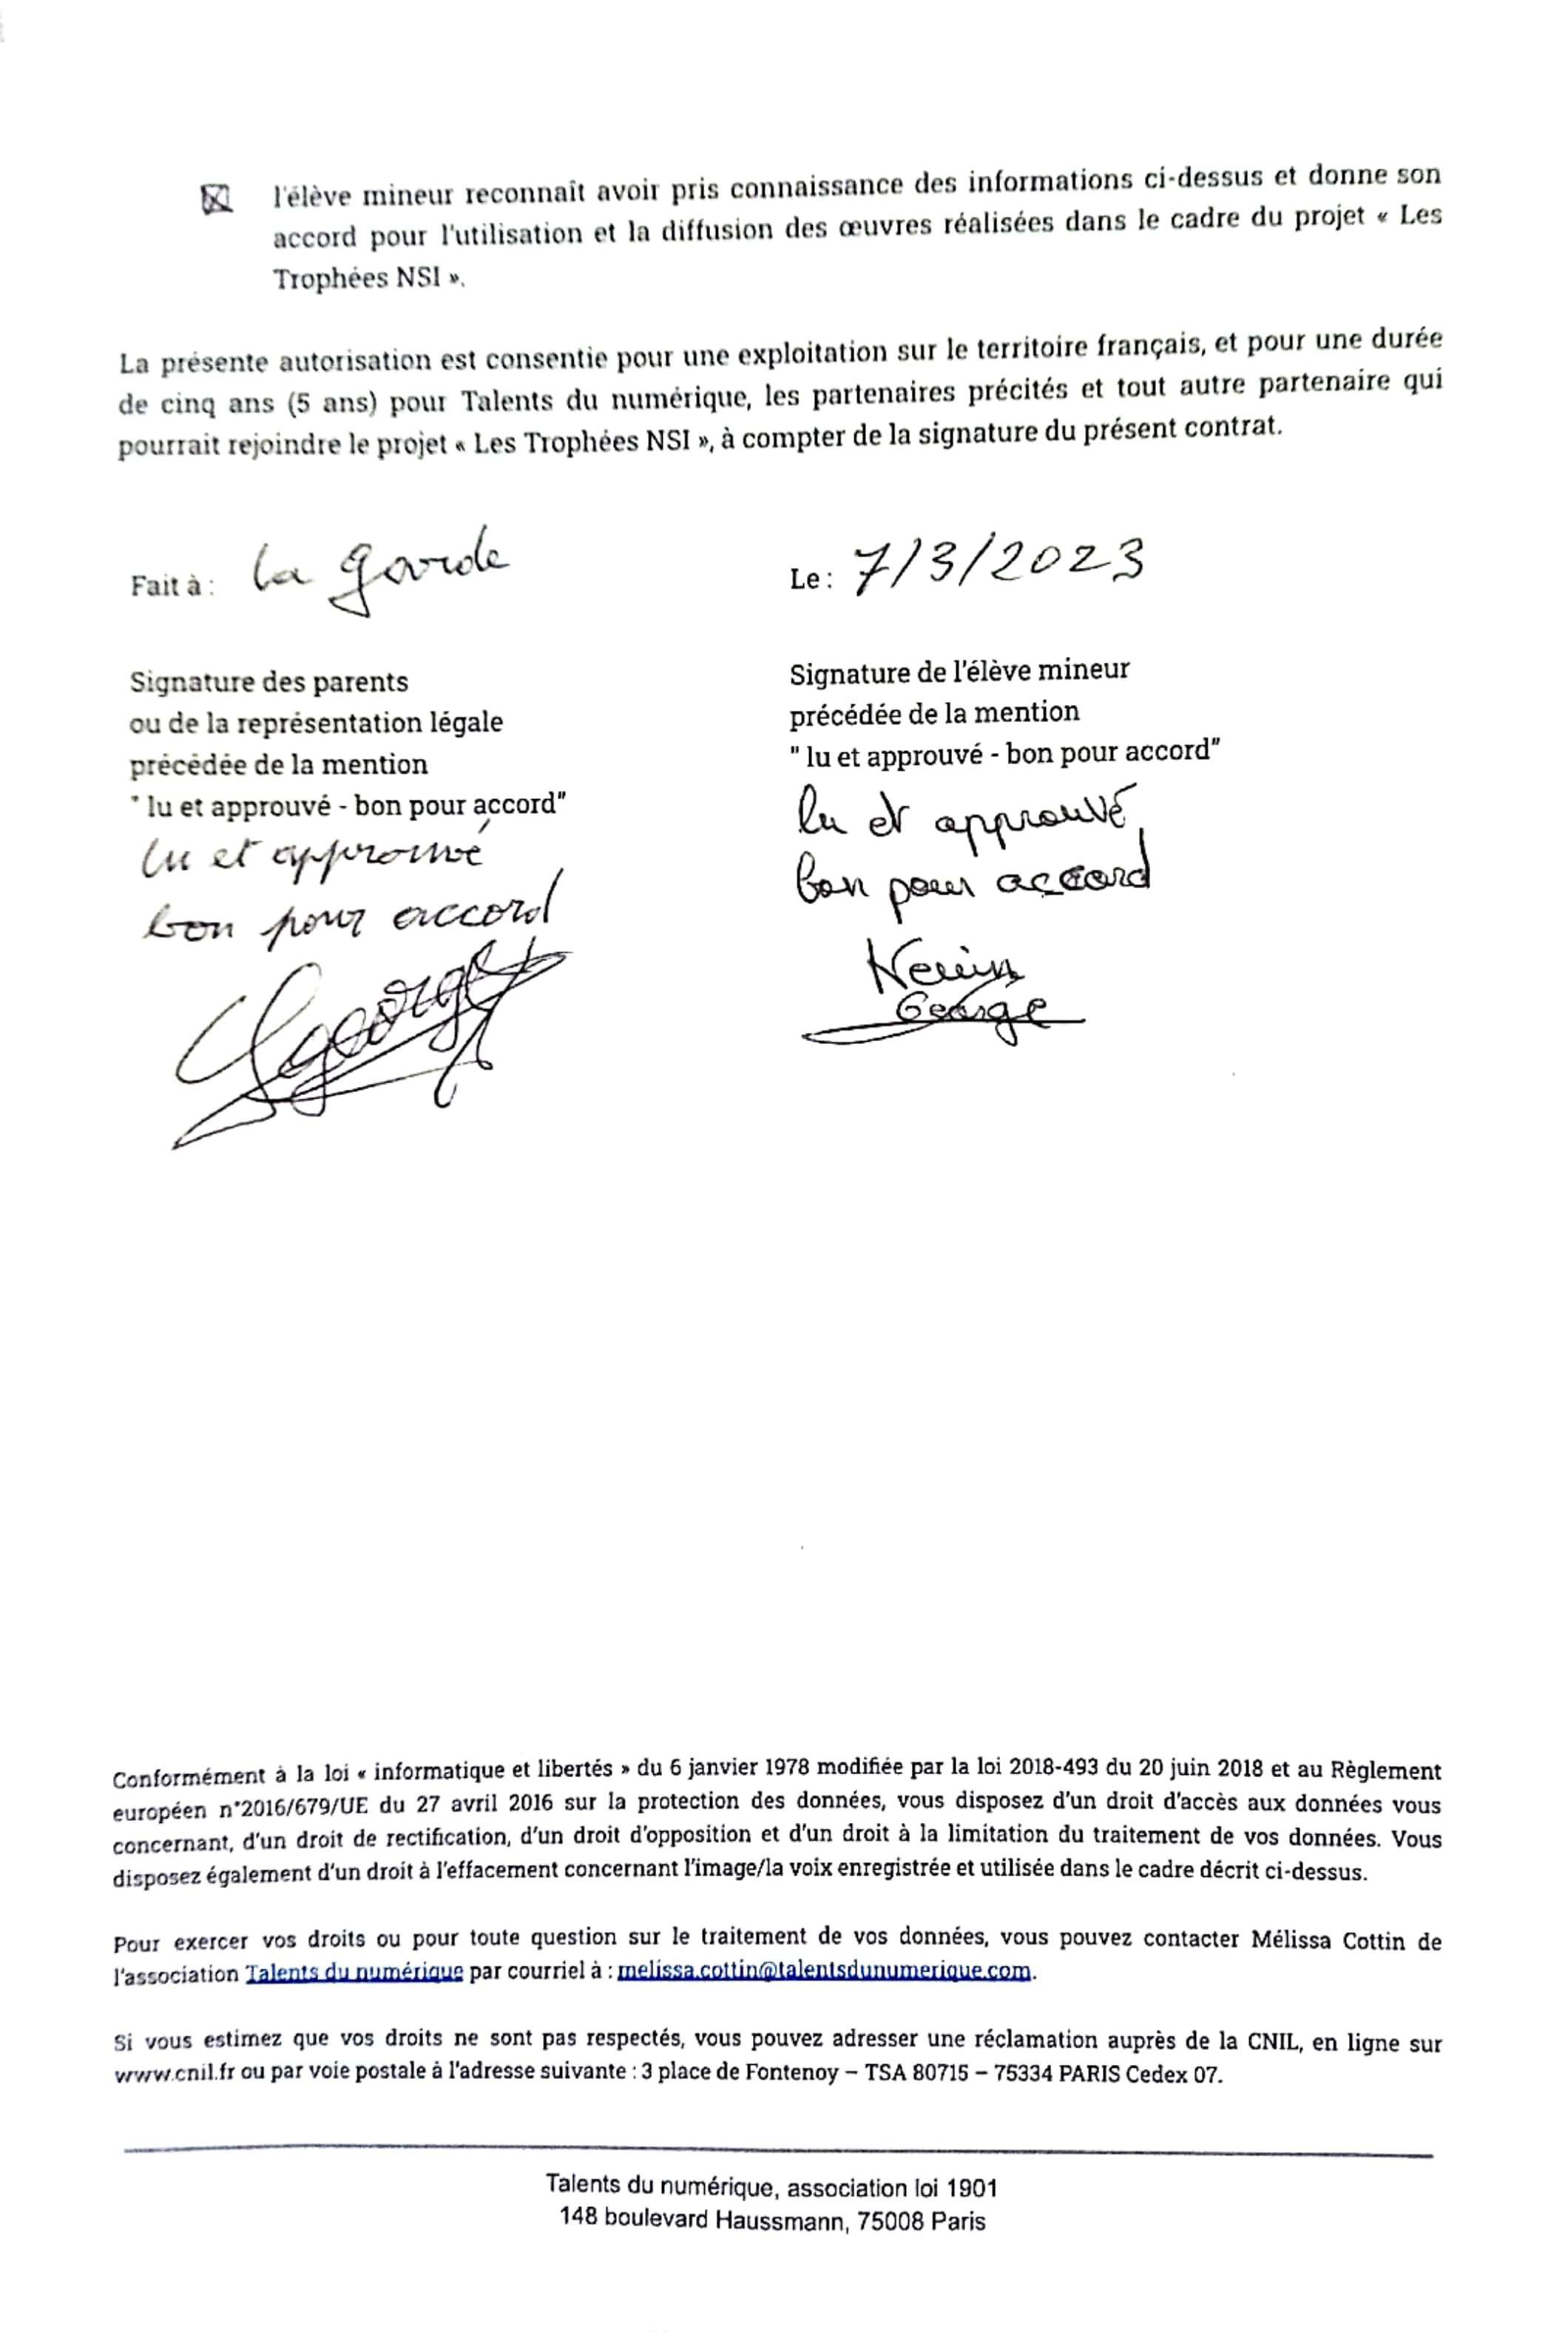 l'élève mineur reconnaît avoir pris connaissance des informations ci-dessus et donne son
accord pour l'utilisation et la diffusion des œuvres réalisées dans le cadre du projet « Les
Trophées NSI ».
La présente autorisation est consentie pour une exploitation sur le territoire français, et pour une durée
de cinq ans (5 ans) pour Talents du numérique, les partenaires précités et tout autre partenaire qui
pourrait rejoindre le projet « Les Trophées NSI », à compter de la signature du présent contrat.
Fait à : la garde
Le : 7/3/2023
Signature des parents
ou de la représentation légale
précédée de la mention
" lu et approuvé - bon pour accord"
lu et approuvé
bon pour accord
george
Signature de l'élève mineur
précédée de la mention
" lu et approuvé - bon pour accord"
lu et approuvé,
bon pour accord
George
Conformément à la loi « informatique et libertés » du 6 janvier 1978 modifiée par la loi 2018-493 du 20 juin 2018 et au Règlement
européen n°2016/679/UE du 27 avril 2016 sur la protection des données, vous disposez d'un droit d'accès aux données vous
concernant, d'un droit de rectification, d'un droit d'opposition et d'un droit à la limitation du traitement de vos données. Vous
disposez également d'un droit à l'effacement concernant l'image/la voix enregistrée et utilisée dans le cadre décrit ci-dessus.
Pour exercer vos droits ou pour toute question sur le traitement de vos données, vous pouvez contacter Mélissa Cottin de
l'association Talents du numérique par courriel à : melissa.cottin@talentsdunumerique.com.
Si vous estimez que vos droits ne sont pas respectés, vous pouvez adresser une réclamation auprès de la CNIL, en ligne sur
www.cnil.fr ou par voie postale à l'adresse suivante : 3 place de Fontenoy – TSA 80715 – 75334 PARIS Cedex 07.
Talents du numérique, association loi 1901
148 boulevard Haussmann, 75008 Paris